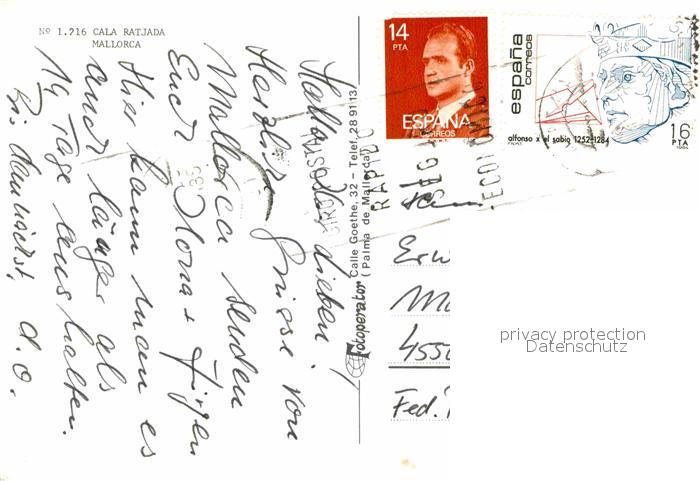 Nº 1.216 CALA RATJADA
MALLORCA
Hallo Ihr Lieben!
Herzliche Grüsse von
Mallorca senden
Euch Ilona + Jürgen
Hier kann man es
länger als
14 Tage aushalten.
Bis demnächst, d. O.
fotoperator
Calle Goethe, 32 – Telef. 28 91 13
(Palma de Mallorca)
14
PTA
ESPAÑA
CORREOS
españa
correos
alfonso x el sabio 1252-1284
16
PTA
RAPIDO
SEG
ECONOMIC
Erw
4550
Fed.
privacy protection
Datenschutz